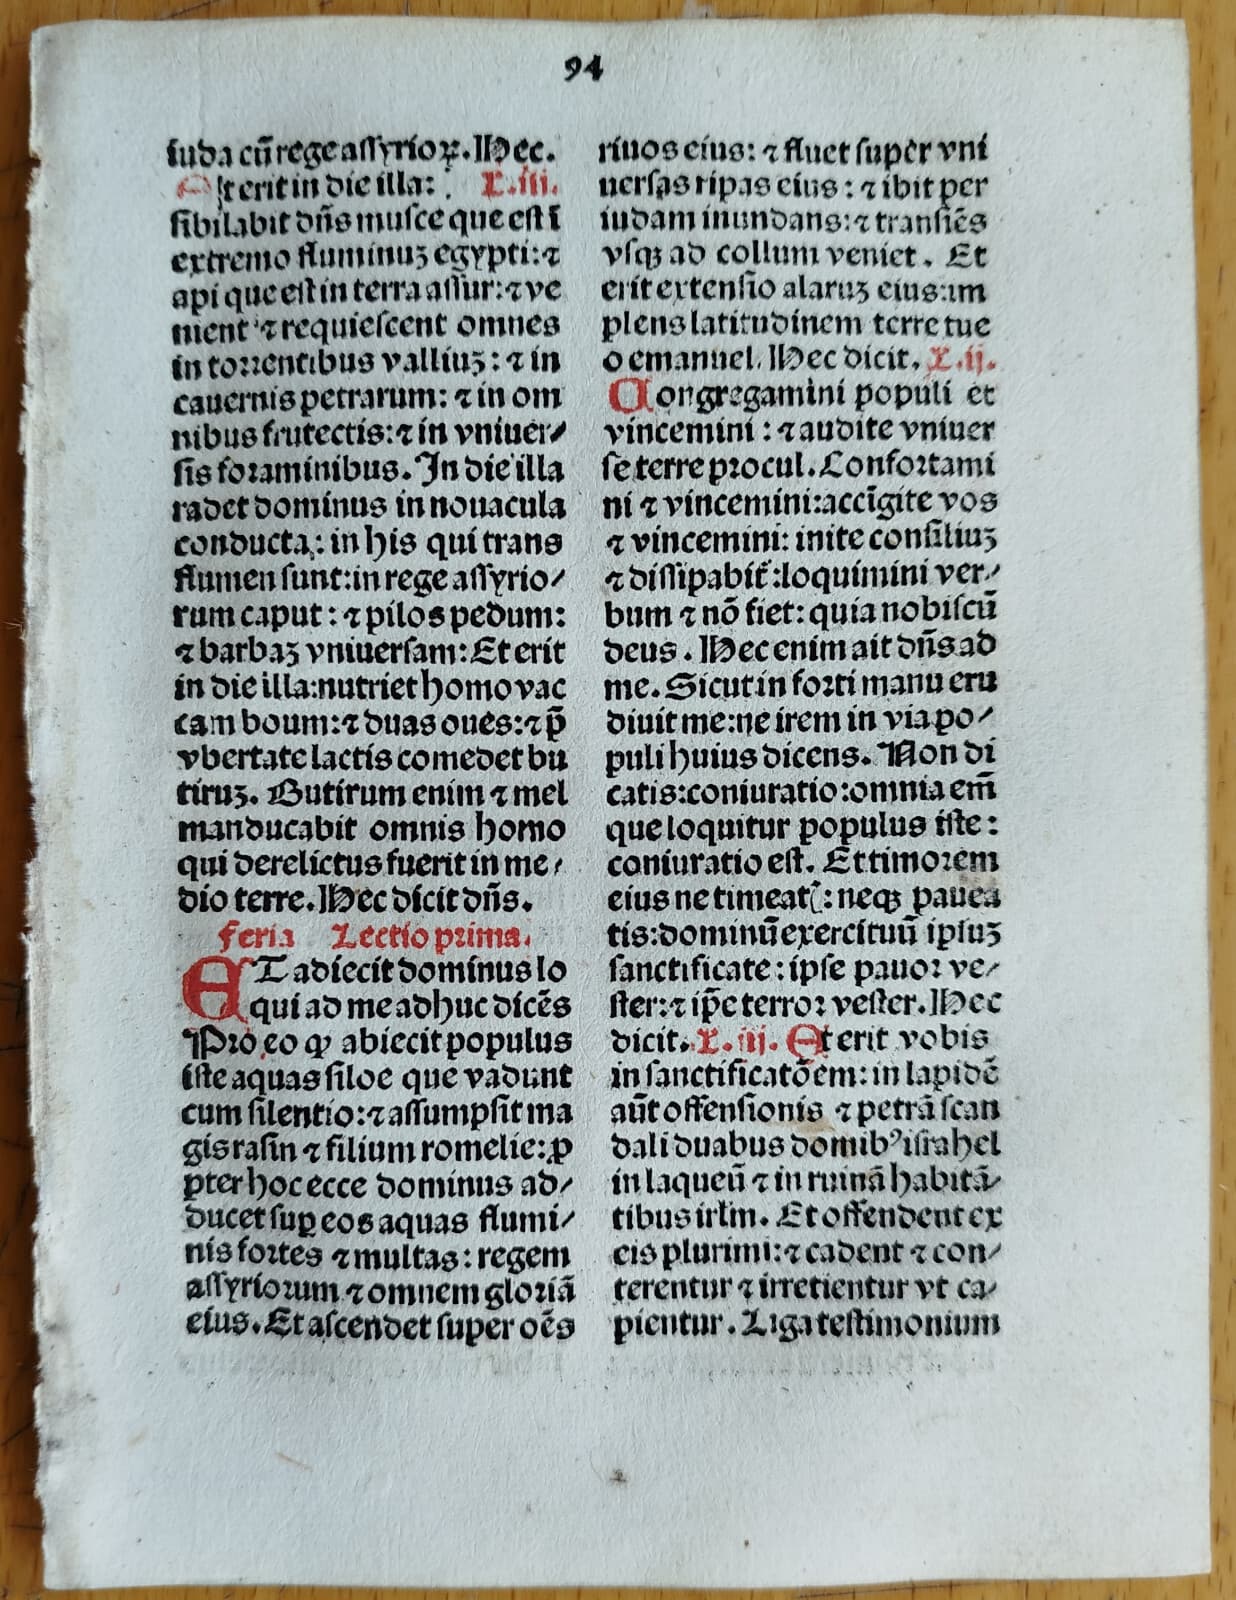 94
iuda cū rege assyrioꝝ. Hec.
Et erit in die illa: L.iii.
sibilabit dn̄s musce que est ī
extremo fluminuꝫ egypti: ⁊
api que est in terra assur: ⁊ ve
nient ⁊ requiescent omnes
in torrentibus valliuꝫ: ⁊ in
cauernis petrarum: ⁊ in om
nibus frutectis: ⁊ in vniuer⸗
sis foraminibus. In die illa
radet dominus in nouacula
conducta: in his qui trans
flumen sunt: in rege assyrio⸗
rum caput: ⁊ pilos pedum:
⁊ barbaꝫ vniuersam: Et erit
in die illa: nutriet homo vac
cam boum: ⁊ duas oues: ⁊ p̄
vbertate lactis comedet bu
tiruꝫ. Butirum enim ⁊ mel
manducabit omnis homo
qui derelictus fuerit in me⸗
dio terre. Hec dicit dn̄s.
feria Lectio prima.
ET adiecit dominus lo
qui ad me adhuc dicēs
Pro eo ꝙ abiecit populus
iste aquas siloe que vadunt
cum silentio: ⁊ assumpsit ma
gis rasin ⁊ filium romelie: ꝓ
pter hoc ecce dominus ad⸗
ducet suꝑ eos aquas flumi⸗
nis fortes ⁊ multas: regem
assyriorum ⁊ omnem gloriā
eius. Et ascendet super oēs
riuos eius: ⁊ fluet super vni
uersas ripas eius: ⁊ ibit per
iudam inundans: ⁊ transiēs
vsqꝫ ad collum veniet. Et
erit extensio alaruꝫ eius: im
plens latitudinem terre tue
o emanuel. Hec dicit. L.ij.
Congregamini populi et
vincemini: ⁊ audite vniuer
se terre procul. Confortami
ni ⁊ vincemini: accīgite vos
⁊ vincemini: inite consiliuꝫ
⁊ dissipabit̄: loquimini ver⸗
bum ⁊ nō fiet: quia nobiscū
deus. Hec enim ait dn̄s ad
me. Sicut in forti manu eru
diuit me: ne irem in via po⸗
puli huius dicens. Non di
catis: coniuratio: omnia em̄
que loquitur populus iste:
coniuratio est. Et timorem
eius ne timeat᷑: neqꝫ pauea
tis: dominū exercituū ipsuꝫ
sanctificate: ipse pauor ve⸗
ster: ⁊ ip̄e terror vester. Hec
dicit. L.iij. Et erit vobis
in sanctificatōem: in lapidē
aūt offensionis ⁊ petrā scan
dali duabus domibꝰ israhel
in laqueū ⁊ in ruinā habitā⸗
tibus irl̄m. Et offendent ex
eis plurimi: ⁊ cadent ⁊ con⸗
terentur ⁊ irretientur vt ca⸗
pientur. Liga testimonium